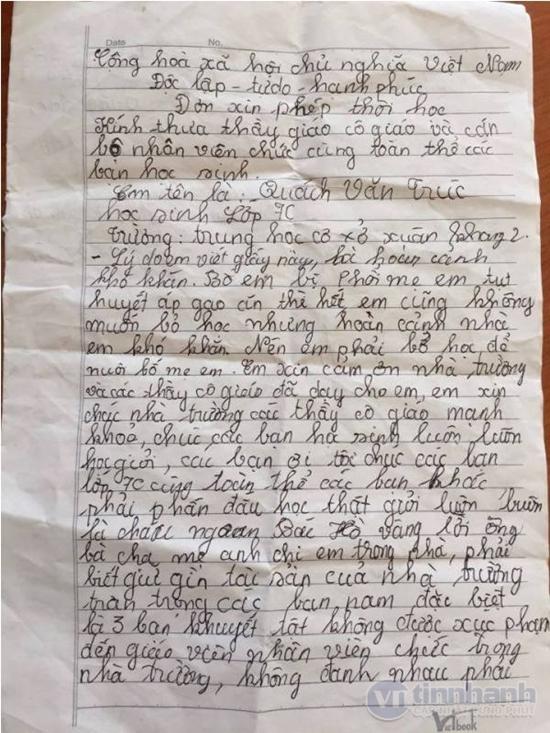 Date No.
Cộng hoà xã hội chủ nghĩa Việt Nam
Độc lập - tự do - hanh phúc
Đơn xin phép thôi học
Kính thưa thầy giáo cô giáo và cán
bộ nhân viên chức cùng toàn thể các
bạn học sinh.
Em tên là. Quách Văn Trúc
học sinh Lớp 7C
Trường: trung học cơ xở xuân khang 2.
- Lý do em viết giấy này, là hoàn cảnh
khó khăn. Bố em bị phổi mẹ em tụt
huyết áp gạo cũn thì hết em cũng không
muốn bỏ học nhưng hoàn cảnh nhà
em khó khăn. Nên em phải bỏ học để
nuôi bố mẹ em. Em xin cảm ơn nhà, trường
và các thầy cô giáo đã day cho em, em xin
chúc nhà trường các thầy cô giáo manh
khoẻ, chúc các ban hà sinh luôn luôn
học giỏi, các bạn ơi tôi chúc các ban
lớp 7C cùng toàn thể các ban khác
phải phấn đấu học thật giỏi luôn luôn
là cháu ngoan Bác Hồ vâng lời ông
bà cha mẹ anh chi em trong nhà, phải
biết gưi gìn tài sản của nhà trường
trân trong các ban, nam đặc biệt
là 3 ban khuyết tât không được xúc pham
đến giáo viên nhân viên chức trong
nhà trường, không đánh nhau phải
vn tinnhanh
Viet book